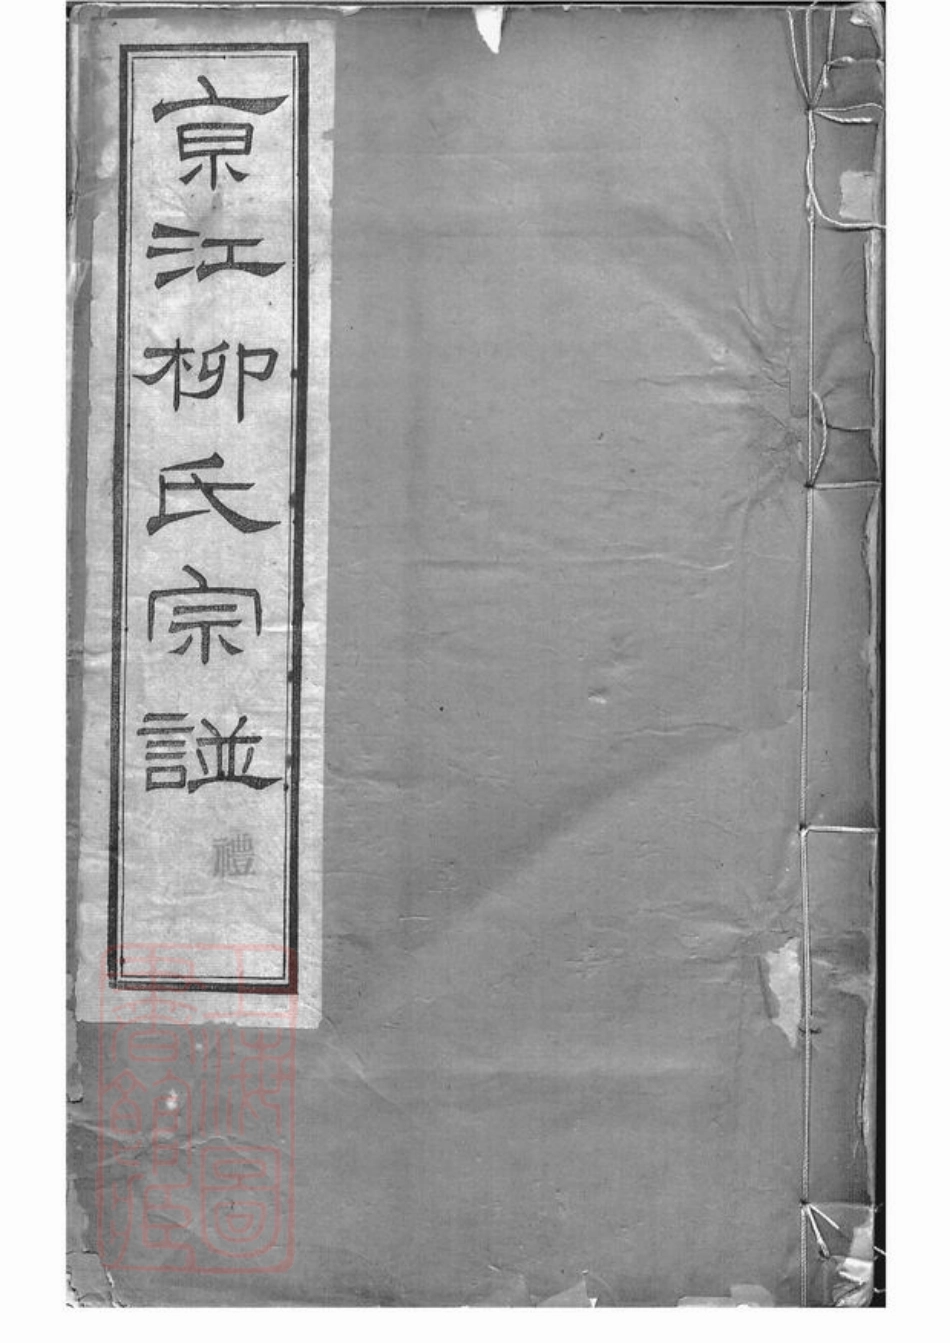 京江柳氏宗譜
禮
上海圖書館藏